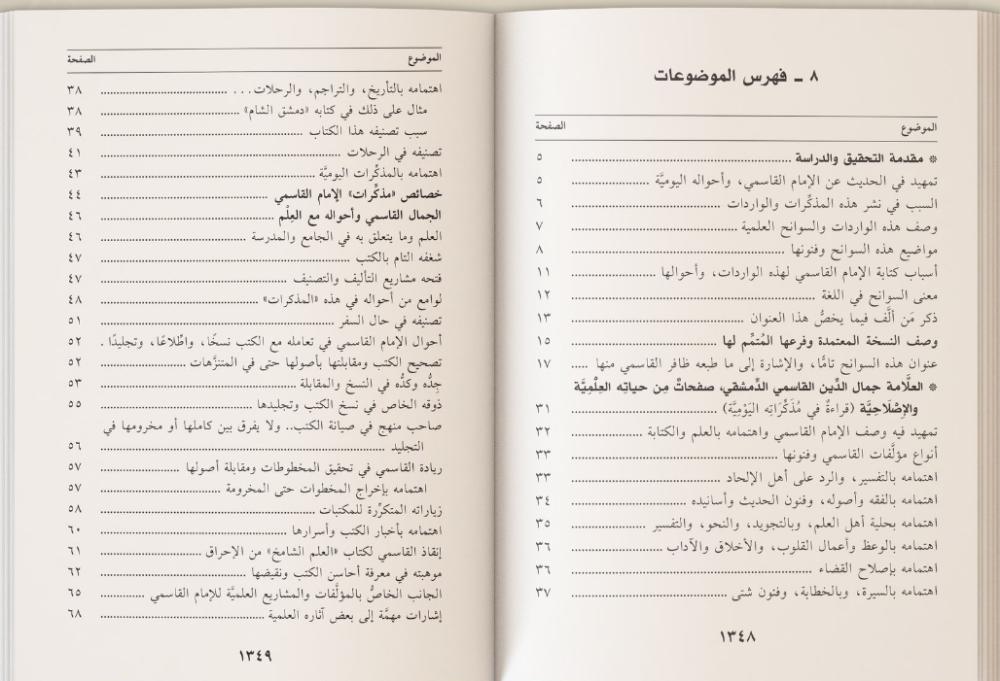 ٨ ـ فهرس الموضوعات
الموضوع الصفحة
❊ مقدمة التحقيق والدراسة ..... ٥
تمهيد في الحديث عن الإمام القاسمي، وأحواله اليوميَّة ..... ٥
السبب في نشر هذه المذكِّرات والواردات ..... ٦
وصف هذه الواردات والسوانح العلمية ..... ٧
مواضيع هذه السوانح وفنونها ..... ٨
أسباب كتابة الإمام القاسمي لهذه الواردات، وأحوالها ..... ١١
معنى السوانح في اللغة ..... ١٢
ذكر مَن ألَّف فيما يخصُّ هذا العنوان ..... ١٣
وصف النسخة المعتمدة وفرعها المُتمِّم لها ..... ١٥
عنوان هذه السوانح تامًّا، والإشارة إلى ما طبعه ظافر القاسمي منها ..... ١٧
❊ العلَّامة جمال الدِّين القاسمي الدِّمشقي، صفحاتٌ مِن حياتِه العِلْمِيَّة
والإصْلَاحِيَّة (قراءةٌ في مُذَكِّرَاتِه اليَوْمِيَّة) ..... ٣١
تمهيد فيه وصف الإمام القاسمي واهتمامه بالعلم والكتابة ..... ٣٢
أنواع مؤلَّفات القاسمي وفنونها ..... ٣٣
اهتمامه بالتفسير، والرد على أهل الإلحاد ..... ٣٣
اهتمامه بالفقه وأصوله، وفنون الحديث وأسانيده ..... ٣٤
اهتمامه بحلية أهل العلم، وبالتجويد، والنحو، والتفسير ..... ٣٥
اهتمامه بالوعظ وأعمال القلوب، والأخلاق والآداب ..... ٣٦
اهتمامه بإصلاح القضاء ..... ٣٦
اهتمامه بالسيرة، وبالخطابة، وفنون شتى ..... ٣٧
١٣٤٨
الموضوع الصفحة
اهتمامه بالتأريخ، والتراجم، والرحلات... ..... ٣٨
مثال على ذلك في كتابه «دمشق الشام» ..... ٣٨
سبب تصنيفه هذا الكتاب ..... ٣٩
تصنيفه في الرحلات ..... ٤١
اهتمامه بالمذكِّرات اليوميَّة ..... ٤٣
خصائص «مذكِّرات» الإمام القاسمي ..... ٤٤
الجمال القاسمي وأحواله مع العِلْم ..... ٤٦
العلم وما يتعلق به في الجامع والمدرسة ..... ٤٦
شغفه التام بالكتب ..... ٤٧
فتحه مشاريع التأليف والتصنيف ..... ٤٧
لوامع من أحواله في هذه «المذكرات» ..... ٤٨
تصنيفه في حال السفر ..... ٥١
أحوال الإمام القاسمي في تعامله مع الكتب نسخًا، واطِّلاعًا، وتجليدًا . ٥٢
تصحيح الكتب ومقابلتها بأصولها حتى في المتنزَّهات ..... ٥٢
جِدُّه وكدُّه في النسخ والمقابلة ..... ٥٣
ذوقه الخاص في نسخ الكتب وتجليدها ..... ٥٥
صاحب منهج في صيانة الكتب.. ولا يفرق بين كاملها أو مخرومها في
التجليد ..... ٥٦
ريادة القاسمي في تحقيق المخطوطات ومقابلة أصولها ..... ٥٧
اهتمامه بإخراج المخطوات حتى المخرومة ..... ٥٧
زياراته المتكرِّرة للمكتبات ..... ٥٨
اهتمامه بأخبار الكتب وأسرارها ..... ٦٠
إنقاذ القاسمي لكتاب «العلم الشامخ» من الإحراق ..... ٦١
موهبته في معرفة أحاسن الكتب ونقيضها ..... ٦٢
الجانب الخاصُّ بالمؤلَّفات والمشاريع العلميَّة للإمام القاسمي ..... ٦٥
إشارات مهمَّة إلى بعض آثاره العلمية ..... ٦٨
١٣٤٩